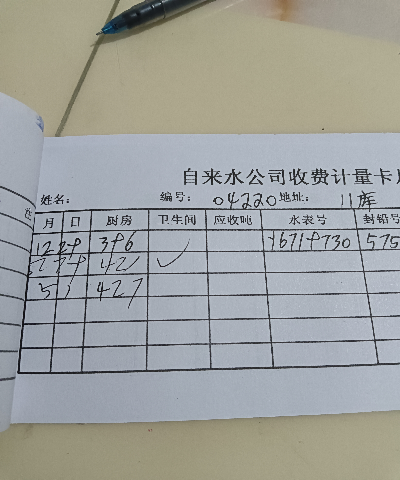 自来水公司收费计量卡片
姓名： 编号：04220 地址：11库
月 日 厨房 卫生间 应收吨 水表号 封铅号
12 29 396 575
421 ✓
5 1 427